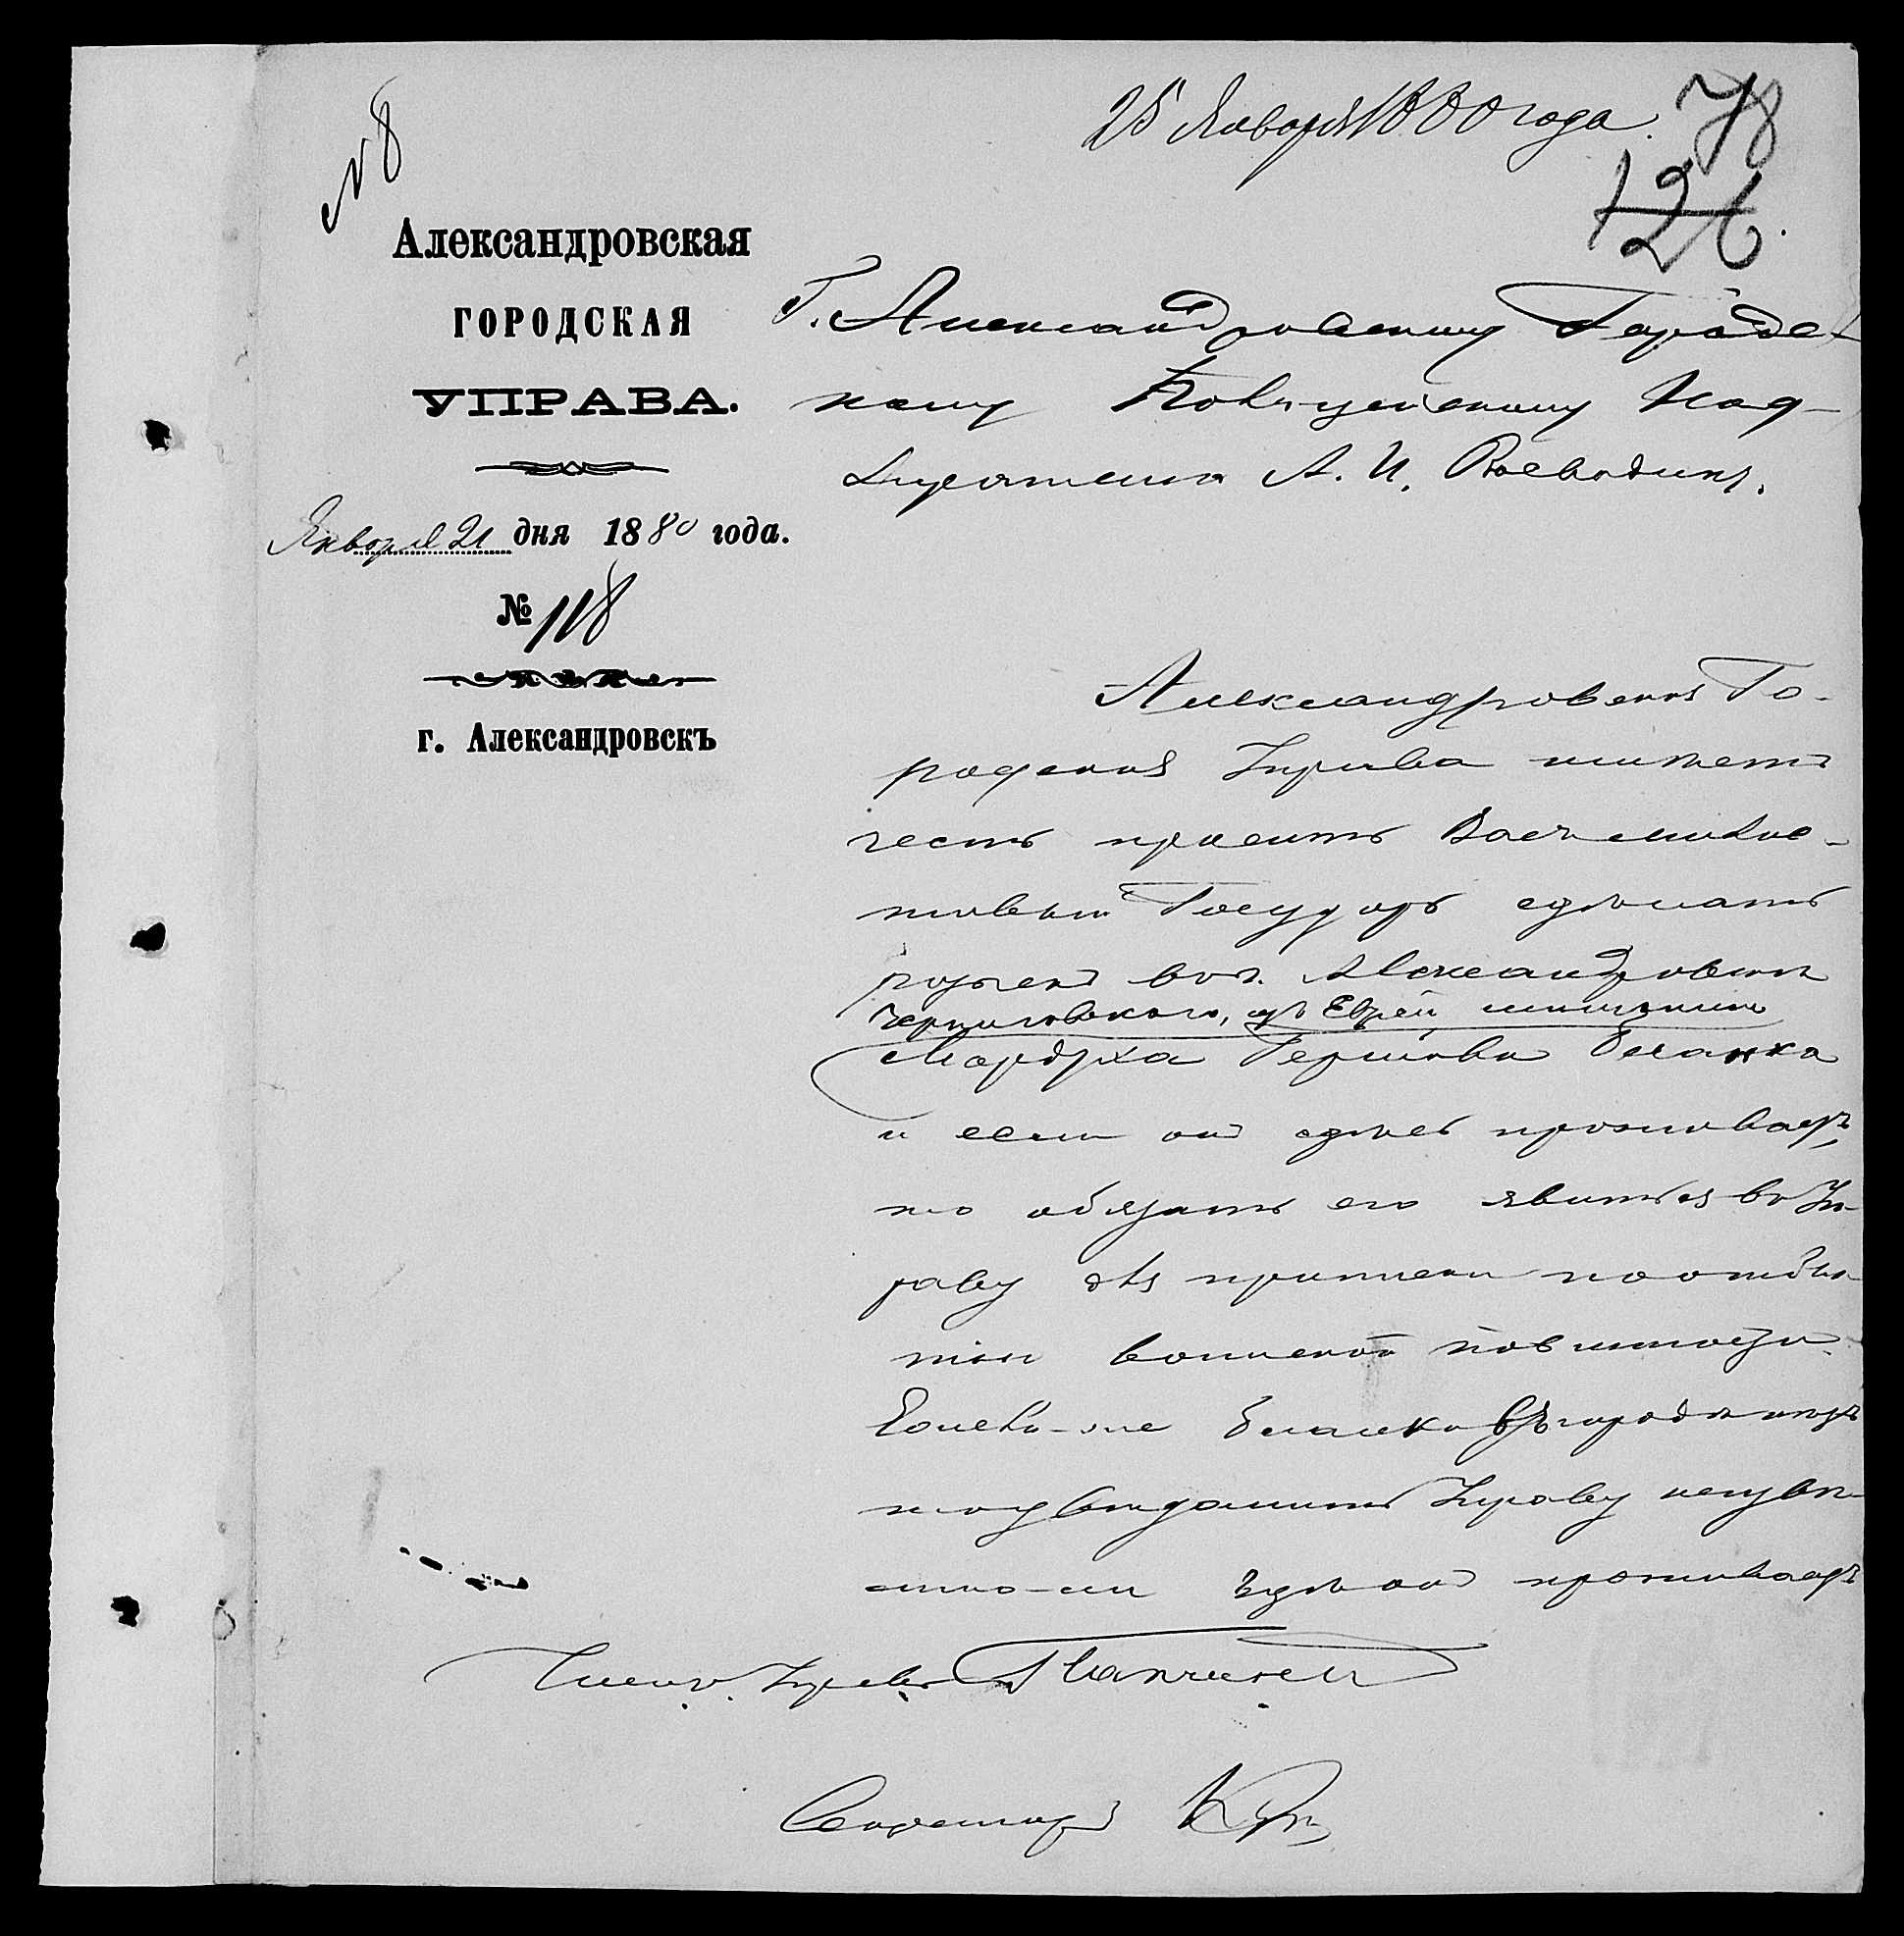 № 8
25 Января 1880 года.
78
126.
Александровская
ГОРОДСКАЯ
УПРАВА.
Января 21 дня 1880 года.
№ 118
г. Александровскъ
Г. Александровскому Городс-
кому Полицейскому Над-
зирателю А. И. Воеводину.
Александровская Го-
родская Управа имѣетъ
честь просить Васъ милос-
тивый Государь сдѣлать
розыскъ въ г. Александровскѣ
Черниговского, изъ Еврей мещанина
Мордуха Гершова
и если онъ здѣсь проживаетъ,
то обязать его явиться въ Уп-
раву для приписки по отбы-
тію воинской повинности.
Если-же въ городѣ нѣтъ
то увѣдомить Управу неизвѣ-
стно-ли гдѣ онъ проживаетъ
Членъ Управы
Секретарь